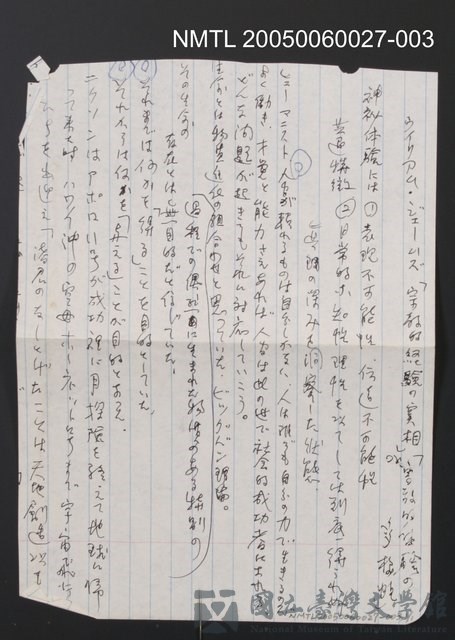 NMTL 20050060027-003
ウイリアム・ジェームズ「宗教的経験の実相」
神秘体験には①表現不可能性、伝達不可能性
②日常的な知性理性を以てしては到底得られぬ
真理の深みを洞察した状態
ヒューマニスト 人 が頼れるものは自分しかない、人は誰でも自分の力で生きるの
よく働き、才覚と能力さえあれば人間は此の世で社会的成功者になれる
どんな問題が起きてもそれに対応していこう。
生命とは物質進化の組合わせと思っていた。ビッグバン理論。
その生命が 過程での偶然に生まれた物質のある特別の
存在とは無目的だと信じていた。
それまでは何かを「得る」ことを目的としていた。
それからは何かを「与える」ことが目的となる
ニクソンはアポロ11号が成功裡に月探険を終えて地球に帰
って来た時、ハワイ沖の空母ホーネットに 宇宙飛行
士たちを出迎え「諸君のなしとげたことは天地創造以来
国立臺灣文学館
National Museum of Taiwan Literature